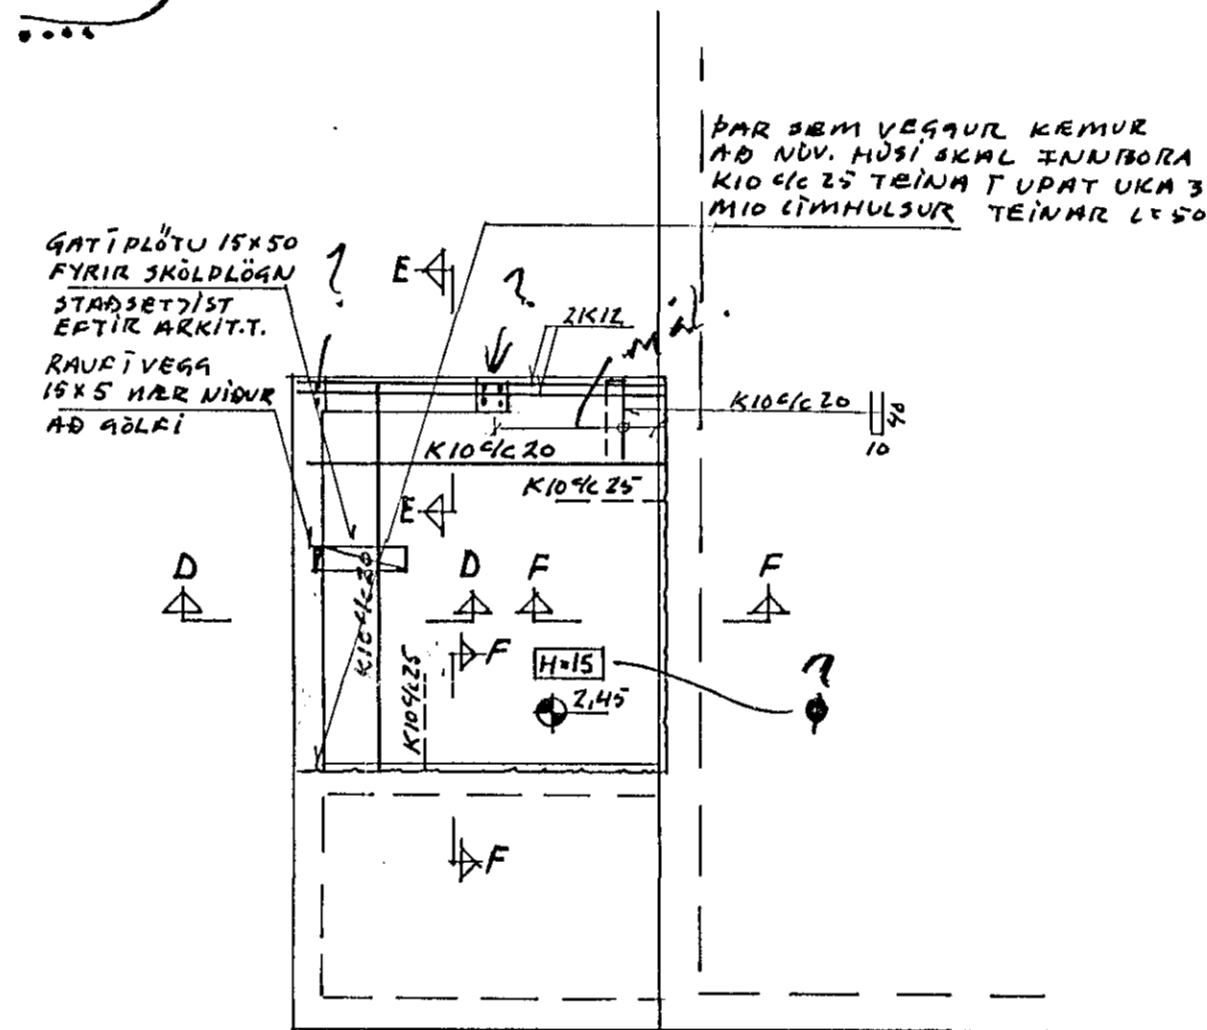 ÞAR SEM VEGGUR KEMUR
AÐ NÚV. HÚSI SKAL INNBORA
K10 c/c 25 TEINA Í UPAT UKA 3
M10 LÍMHULSUR TEINAR L=50
GAT Í PLÖTU 15x50
FYRIR SKÓLPLÖGN
STAÐSETJIST
EFTIR ARKIT.T.
RAUF Í VEGG
15x5 NÆR NIÐUR
AÐ GÓLFI
?
E
?
2K12
mál.
K10 c/c 20
40
10
K10 c/c 20
K10 c/c 25
E
D
D
F
F
K10 c/c 20
K10 c/c 25
F
H=15
?
2,45
F